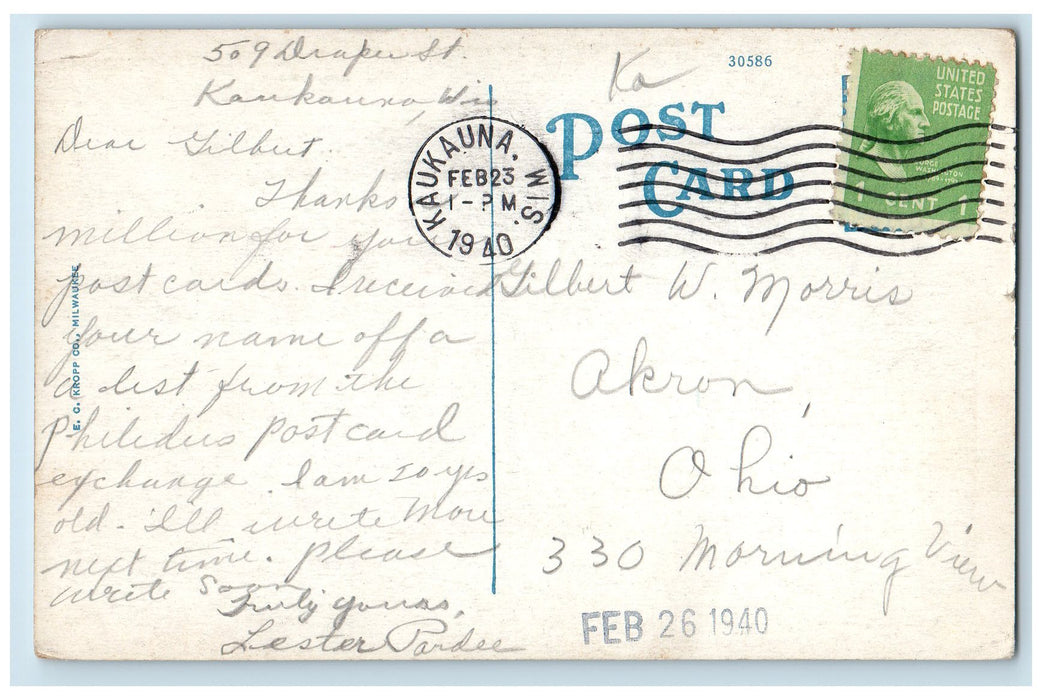 509 Draper St.
Kaukauna, Wis
Dear Gilbert.
Thanks
million for your
postcards. I received
your name off a
a list from the
postcard
exchange. I am 20 yrs
old. I'll write more
next time. Please
write soon
Truly yours,
Lester Pardee
E. C. KROPP CO., MILWAUKEE
KAUKAUNA, WIS.
FEB 23
1 - PM
1940
Ka
30586
POST
CARD
UNITED
STATES
POSTAGE
GEORGE
WASHINGTON
1 CENT 1
Gilbert W. Morris
Akron,
Ohio
330 Morning View
FEB 26 1940